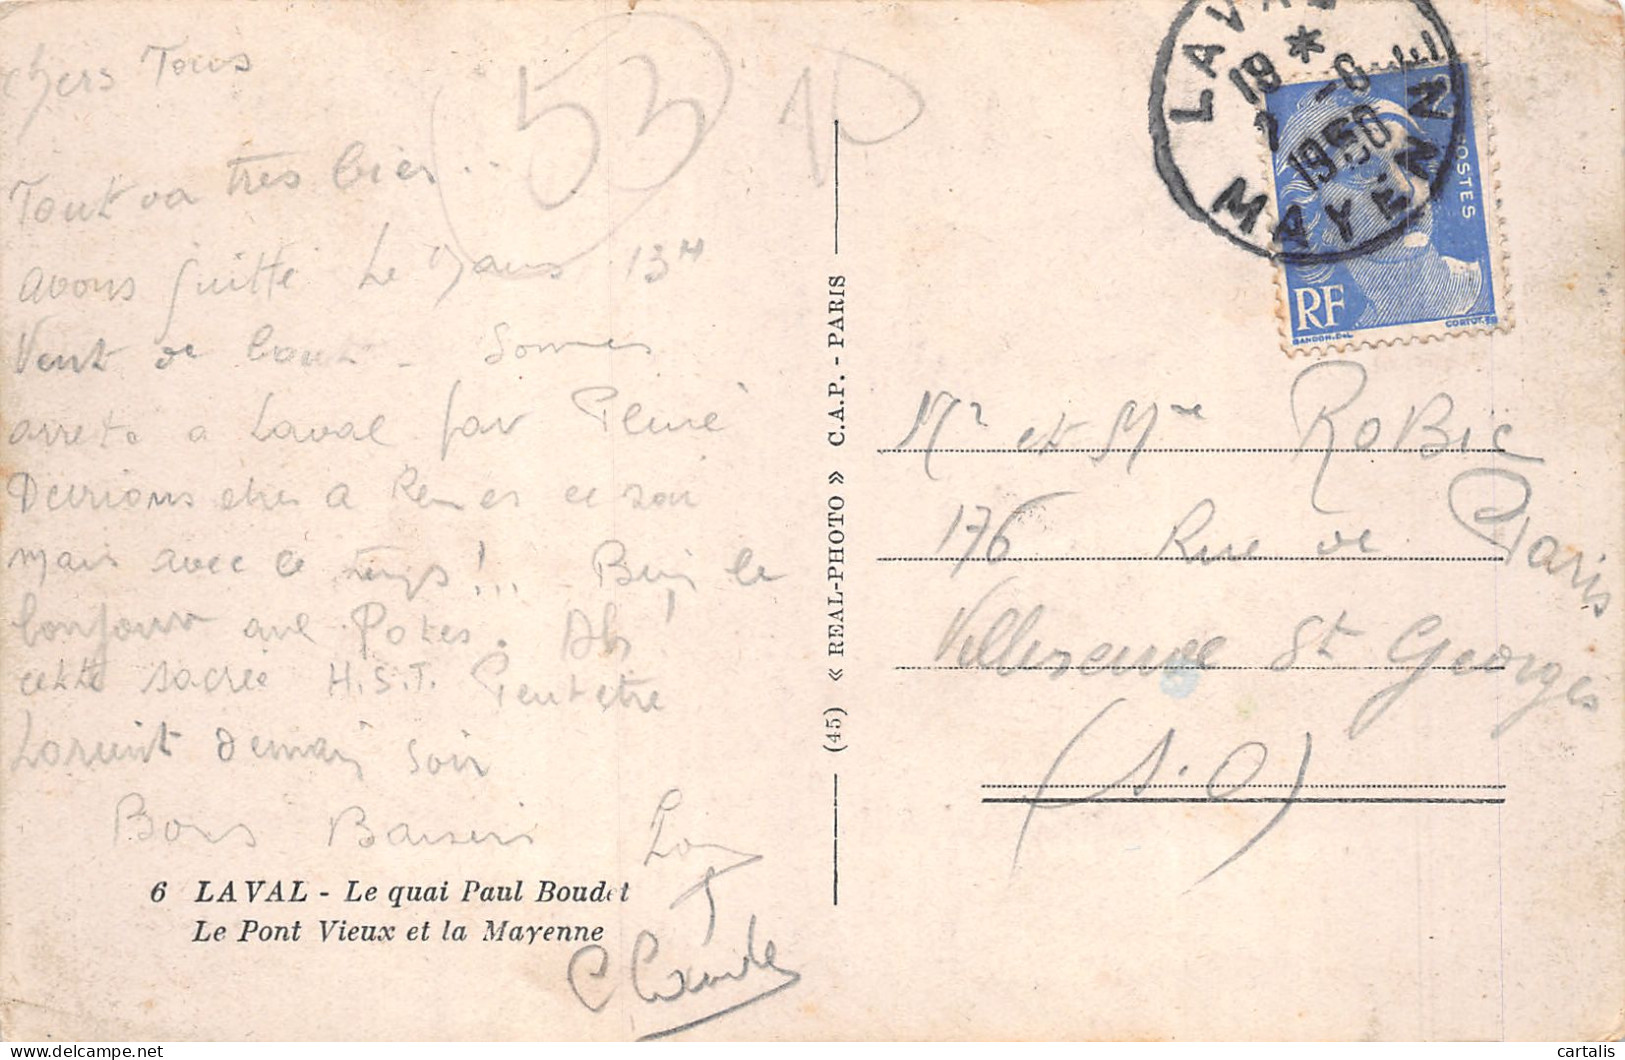 chers Tous
53 10
Tout va très bien...
avons quitté Le Mans 13H
Vent de bout - Sommes
arreté a Laval par Pluie
Devrions etre a Rennes ce soir
mais avec ce temps!... Bien le
bonjour aux Potes. Ah!
cette sacrée H.S.T. Peut etre
Lorient demain soir
Bons Baisers
Claude
6 LAVAL - Le quai Paul Boudet
Le Pont Vieux et la Mayenne
(45) « REAL-PHOTO » C.A.P. - PARIS
LAVAL
19 *
2 -8
1950
MAYENNE
12
POSTES
RF
GANDON.DEL
CORTOT.SC
Mr et Mme RoBic
176 Rue de Paris
Villeneuve St Georges
(S.O)
cartalis